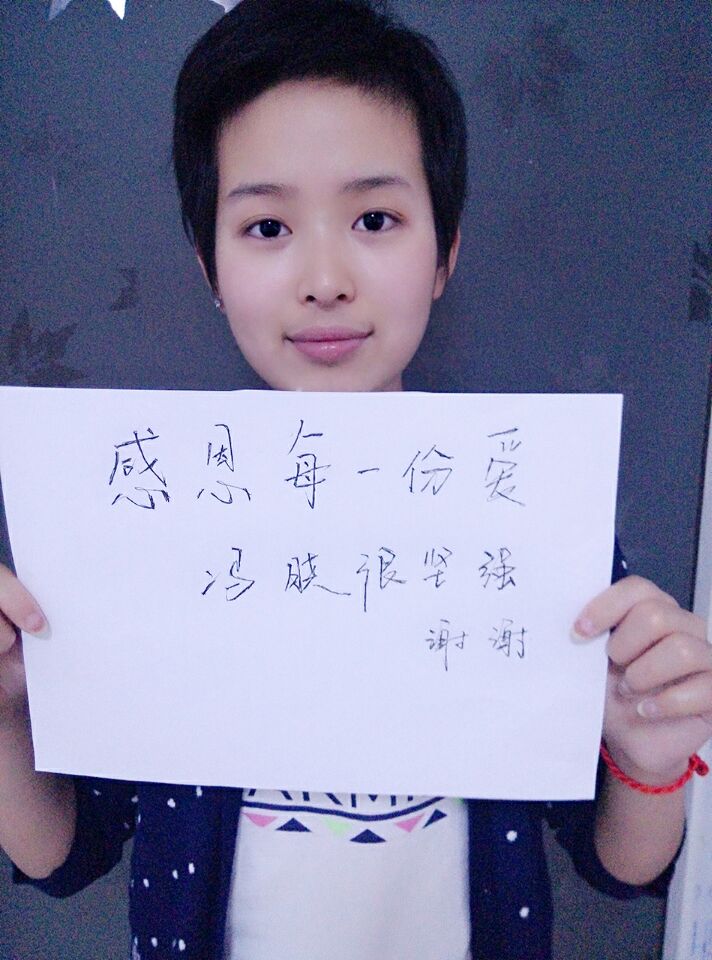 感恩每一份爱
冯晓很坚强
谢谢